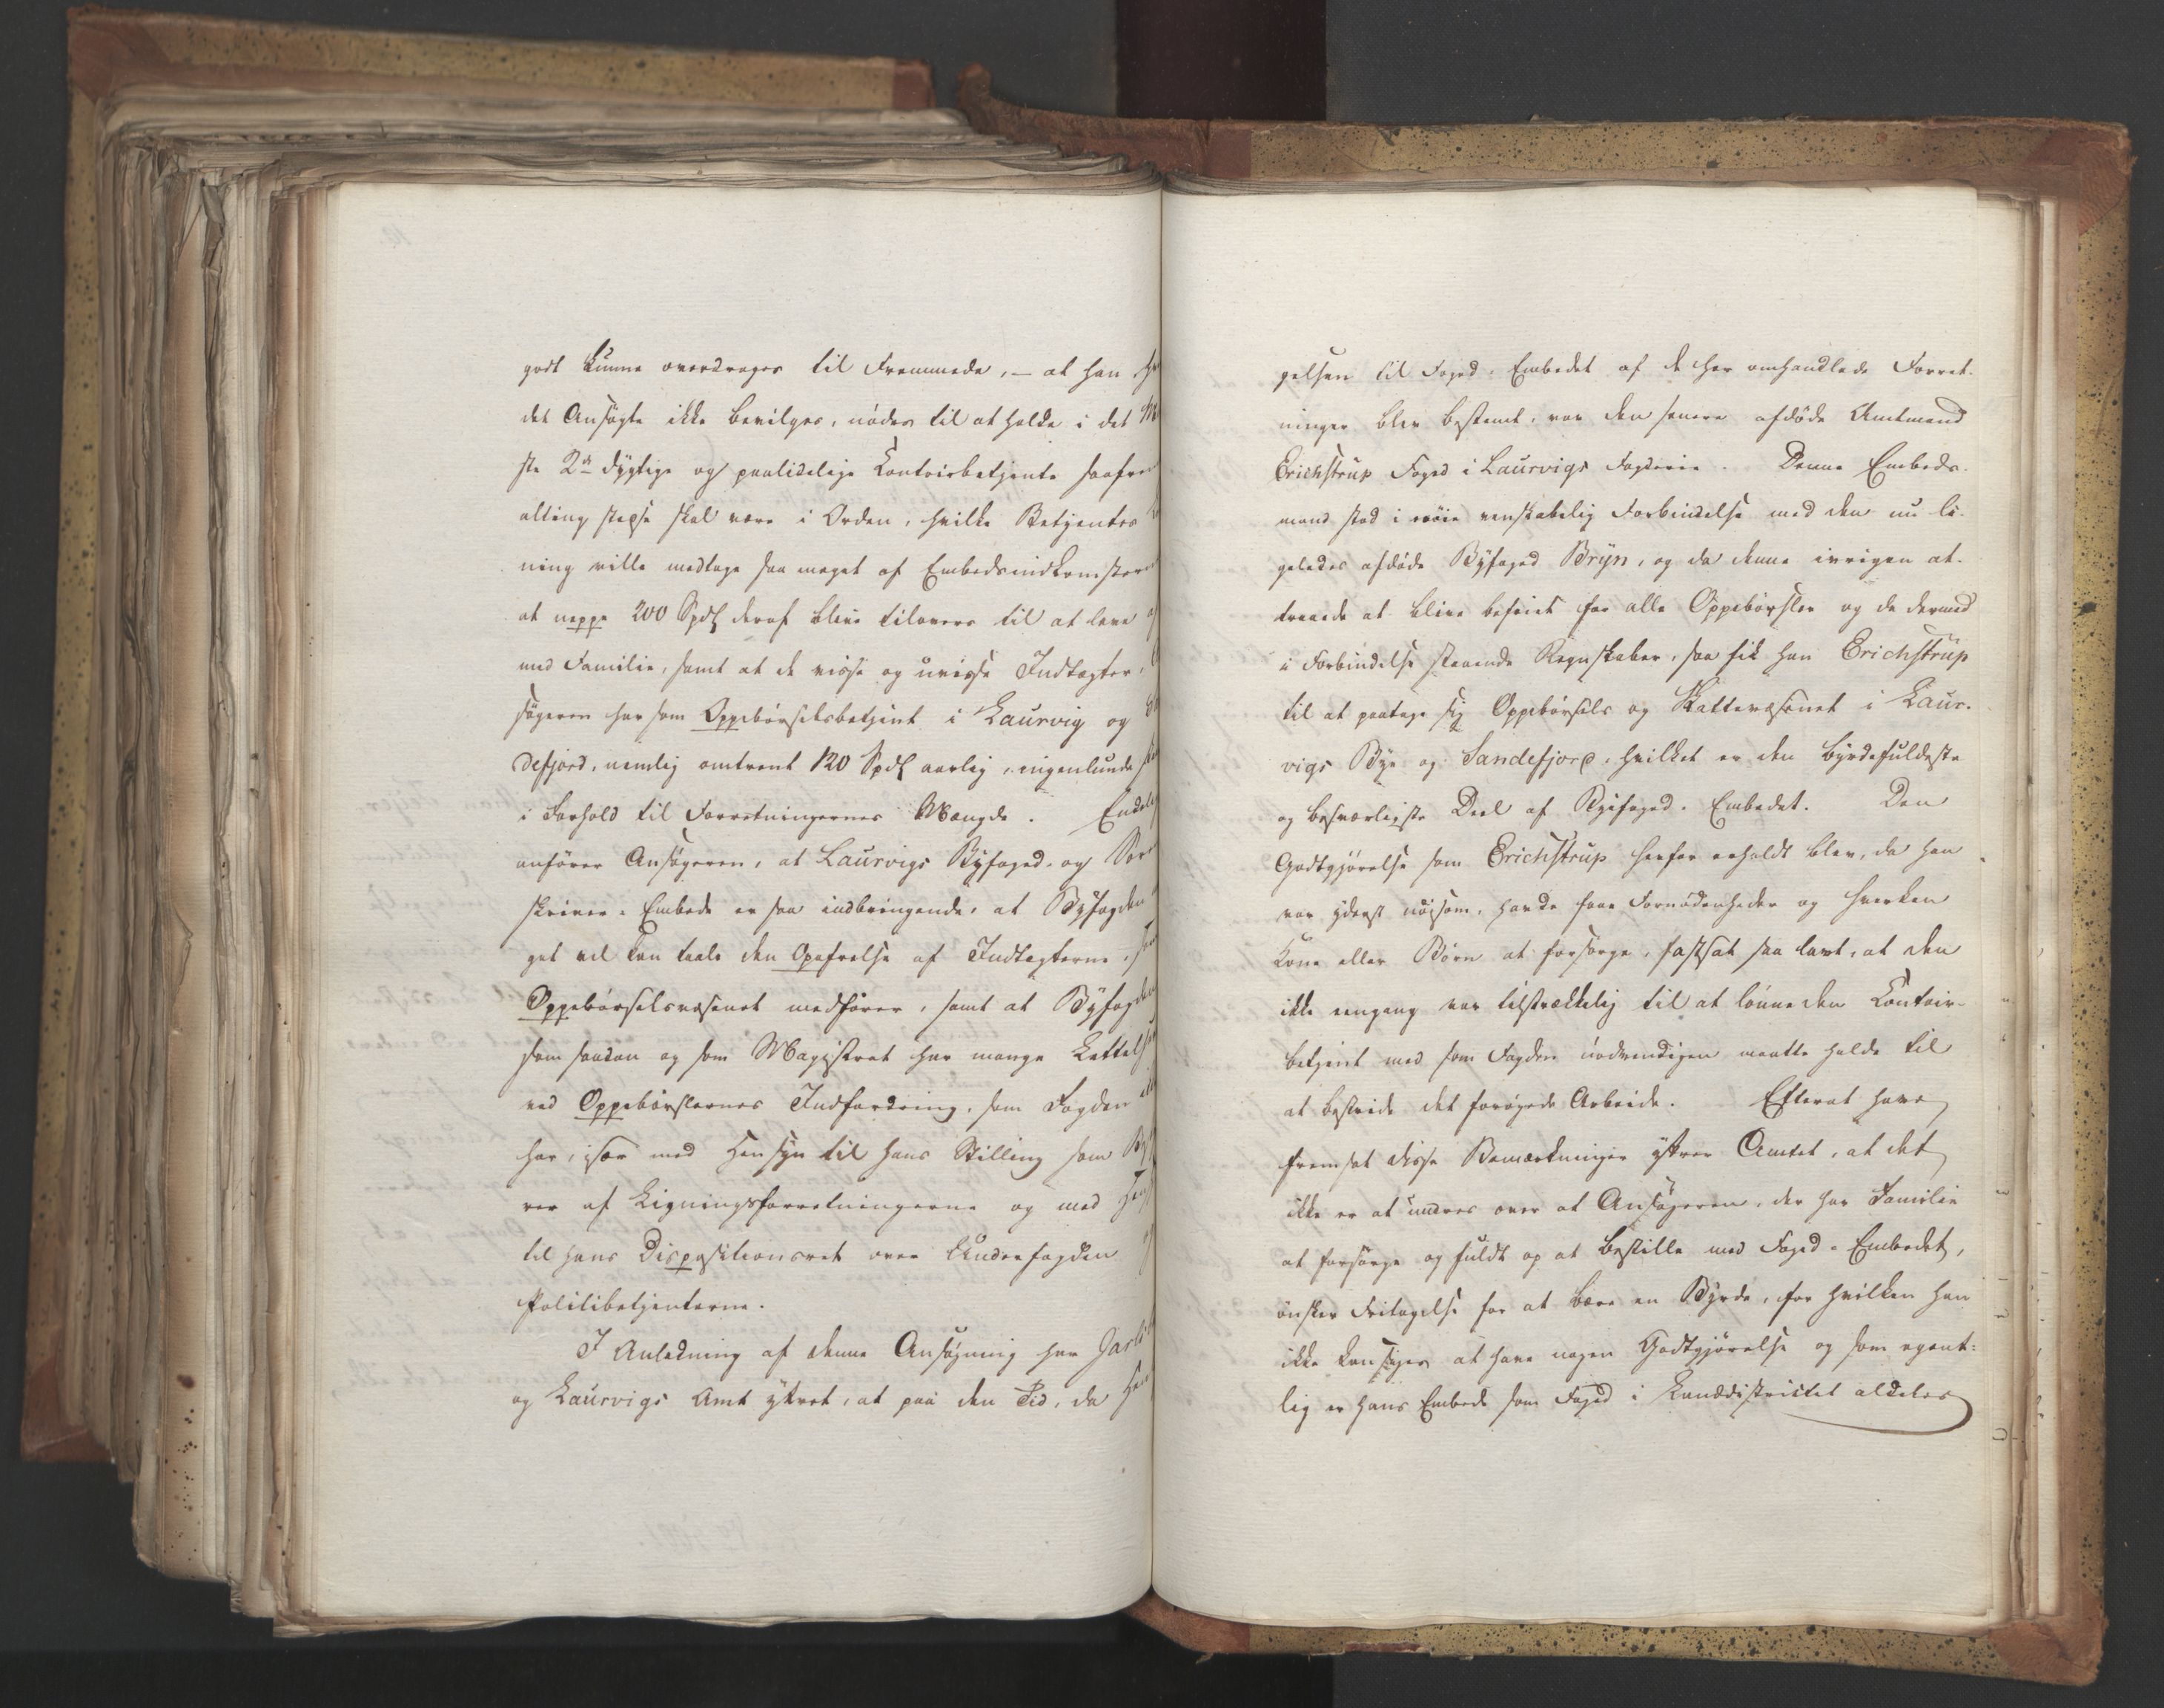 godt kunne overdrages til Fremmede, – at han
det Ansøgte ikke bevilges, nødes til at holde i det
ste 2de dygtige og paalidelige Contoirbetjente saafre
alting stedse skal være i Orden, hvilke Betjentes
ning ville medtage saa meget af Embedsindkomster
at neppe 200 Spd deraf blive tilovers til at leve
med Familie, samt at de visse og uvisse Indtægter,
søgeren har som Oppebørselsbetjent i Laurvig og
defjord, nemlig omtrent 120 Spd aarlig, ingenlunde
i Forhold til Forretningernes Mængde. Endelig
anfører Ansøgeren, at Laurvigs Byfoged- og Sor
skriver-Embede er saa indbringende, at Byfogden
get vel kan taale den Opofrelse af Indtægterne, som
Oppebørselsvæsenet medfører, samt at Byfogden
som saadan og som Magistrat har mange Lettelser
ved Oppebørslernes Indfordring, som Fogden ei
har, især med Hensyn til hans Stilling som
rer af Ligningsforretningerne og med Hens
til hans Dispositionsret over Underfogden og
Politibetjenterne.
I Anledning af denne Ansøgning har Jarls
og Laurvigs Amt yttret, at paa den Tid, da
gelsen til Foged-Embedet af de her omhandlede Forret-
ninger blev bestemt, var den senere afdøde Amtmand
Erichstrup Foged i Laurvigs Fogderie. Denne Embeds-
mand stod i nøie venskabelig Forbindelse med den nu li-
geledes afdøde Byfoged Bryn, og da denne ivrigen at-
traaede at blive befriet for alle Oppebørsler og de dermed
i Forbindelse staaende Regnskaber, saa fik han Erichstrup
til at paatage sig Oppebørsels og Skattevæsenet i Laur-
vigs Bye og Sandefjord, hvilket er den byrdefuldeste
og besværligste Deel af Byefoged-Embedet. Den
Godtgjørelse som Erichstrup herfor erholdt blev, da han
var yderst nøisom, havde faae Fornødenheder og hverken
Kone eller Børn at forsørge, fastsat saa lavt, at den
ikke engang var tilstrækkelig til at lønne den Contoir-
betjent med som Fogden nødvendigen maatte holde til
at bestride det forøgede Arbeide. Efterat have
fremsat disse Bemærkninger yttrer Amtet, at det
ikke er at undres over at Ansøgeren, der har Familie
at forsørge og fuldt op at bestille med Foged-Embedet,
ønsker Fritagelse for at bære en Byrde, for hvilken han
ikke kan siges at have nogen Godtgjørelse og som egent-
lig er hans Embede som Foged i Landdistrictet aldeles